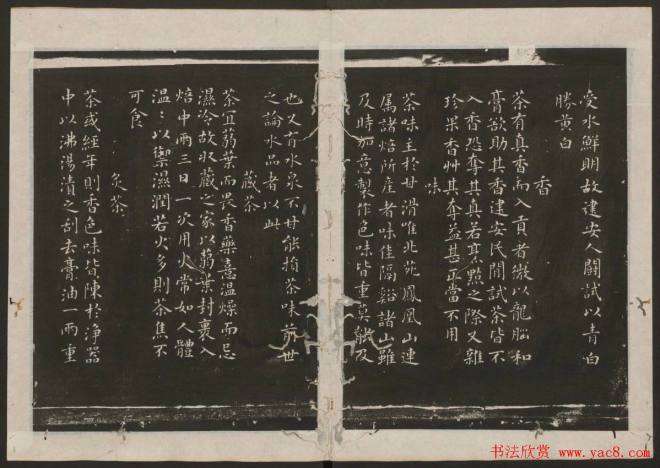 受水鮮明故建安人鬭試以青白
勝黄白
香
茶有真香而入貢者微以龍腦和
膏欲助其香建安民間試茶皆不
入香恐奪其真若烹點之際又雜
珍果香艸其奪益甚正當不用
味
茶味主於甘滑唯北苑鳳凰山連
属諸焙所產者味佳隔谿諸山雖
及時加意製作色味皆重莫能及
也又有水泉不甘能損茶味前世
之論水品者以此
藏茶
茶宜蒻葉而畏香藥喜温燥而忌
濕冷故収藏之家以蒻葉封裹入
焙中兩三日一次用火常如人體
温〻以禦濕潤若火多則茶焦不
可食
炙茶
茶或經年則香色味皆陳於浄器
中以沸湯漬之刮去膏油一兩重
书法欣赏
www.yac8.com